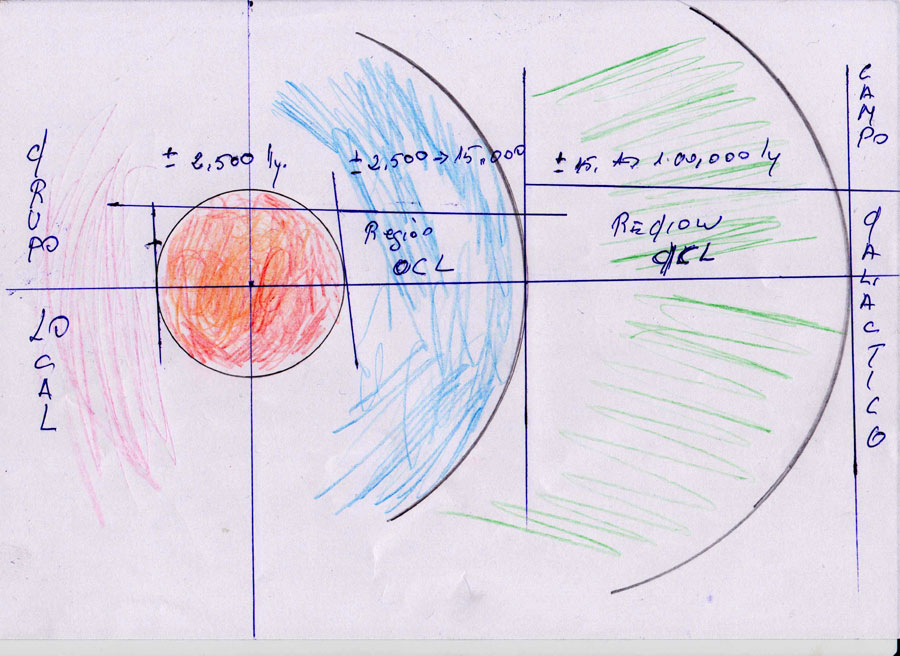 GRUPO
LOCAL
± 2,500 ly.
± 2,500 → 15,000
Región
OCL
± 15, → 100,000 ly
REGION
GCL
CAMPO
GALACTICO